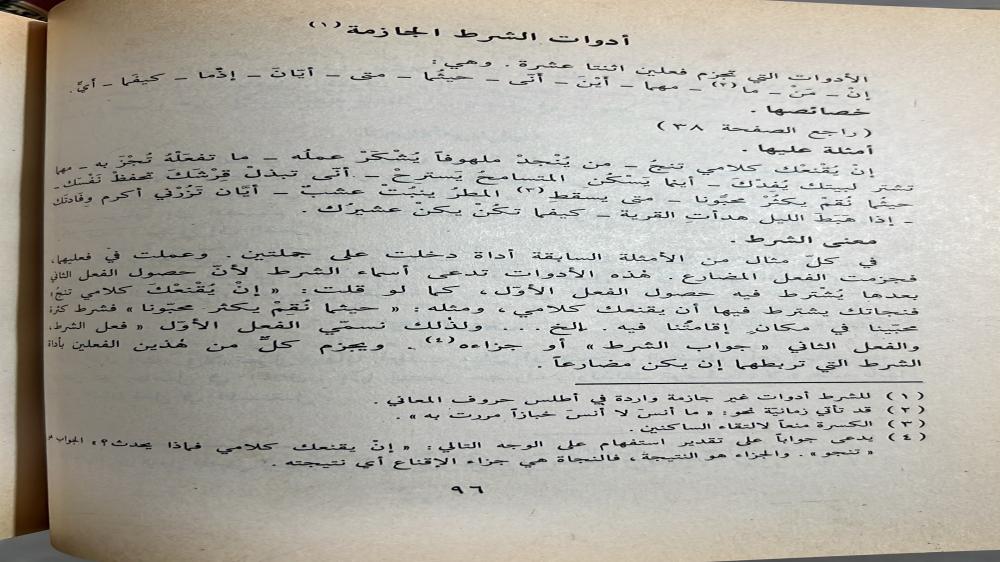 أدوات الشرط الجازمة (١)
الأدوات التي تجزم فعلين اثنتا عشرة . وهي :
إنْ – مَنْ – ما (٢) – مهما – أيْنَ – أنّى – حيثُما – متى – أيّانَ – إذْما – كيفَما – أيّ .
خصائصها .
( راجع الصفحة ٣٨ )
أمثلة عليها .
إنْ يُقْنِعْك كلامي تنجُ – من يُنْجدْ ملهوفاً يُشْكَرْ عملُه – ما تفعَلْهُ تُجْزَ به – مهما
تشترِ لبيتك يُفدْك – أينما يَسْكُن المتسامحُ يَسترحْ – أنّى تبذلْ قرْشَكَ تحفظْ نَفْسَك –
حيثُما نُقمْ يكثرْ محبّونا – متى يسقط (٣) المطرُ ينبُتْ عشبٌ – أيّان تَزُرْني أكرم وِفادَتَك
– إذا هَبَطَ الليل هدأتِ القرية – كيفما تكُنْ يكنْ عشيرُك .
معنى الشرط .
في كلّ مثال من الأمثلة السابقة أداة دخلت على جملتين . وعملت في فعليهما،
فجزمت الفعل المضارع . هذه الأدوات تدعى أسماء الشرط لأنّ حصول الفعل الثاني
بعدها يُشْترط فيه حصول الفعل الأوّل، كما لو قلت : « إنْ يُقْنعْكَ كلامي تنجُ »
فنجاتك يشترط فيها أن يقنعك كلامي، ومثله : « حيثما نُقِمْ يكثر محبّونا » فشرط كثرة
محبّينا في مكانٍ إقامتُنا فيه . إلخ ... ولذلك نسمّي الفعل الأوّل « فعل الشرط،
والفعل الثاني « جواب الشرط » أو جزاءه (٤) . ويجزم كلٌّ من هٰذين الفعلين بأداة
الشرط التي تربطهما إن يكن مضارعاً .
( ١ ) للشرط أدوات غير جازمة واردة في أطلس حروف المعاني .
( ٢ ) قد تأتي زمانيّة نحو : « ما أنسَ لا أنسَ خبازاً مررت به » .
( ٣ ) الكسرة منعاً لالتقاء الساكنين .
( ٤ ) يدعى جواباً على تقدير استفهام على الوجه التالي : « إنْ يقنعك كلامي فماذا يحدث؟ » الجواب هو
« تنجو » . والجزاء هو النتيجة، فالنجاة هي جزاء الإقناع أي نتيجته .
٩٦